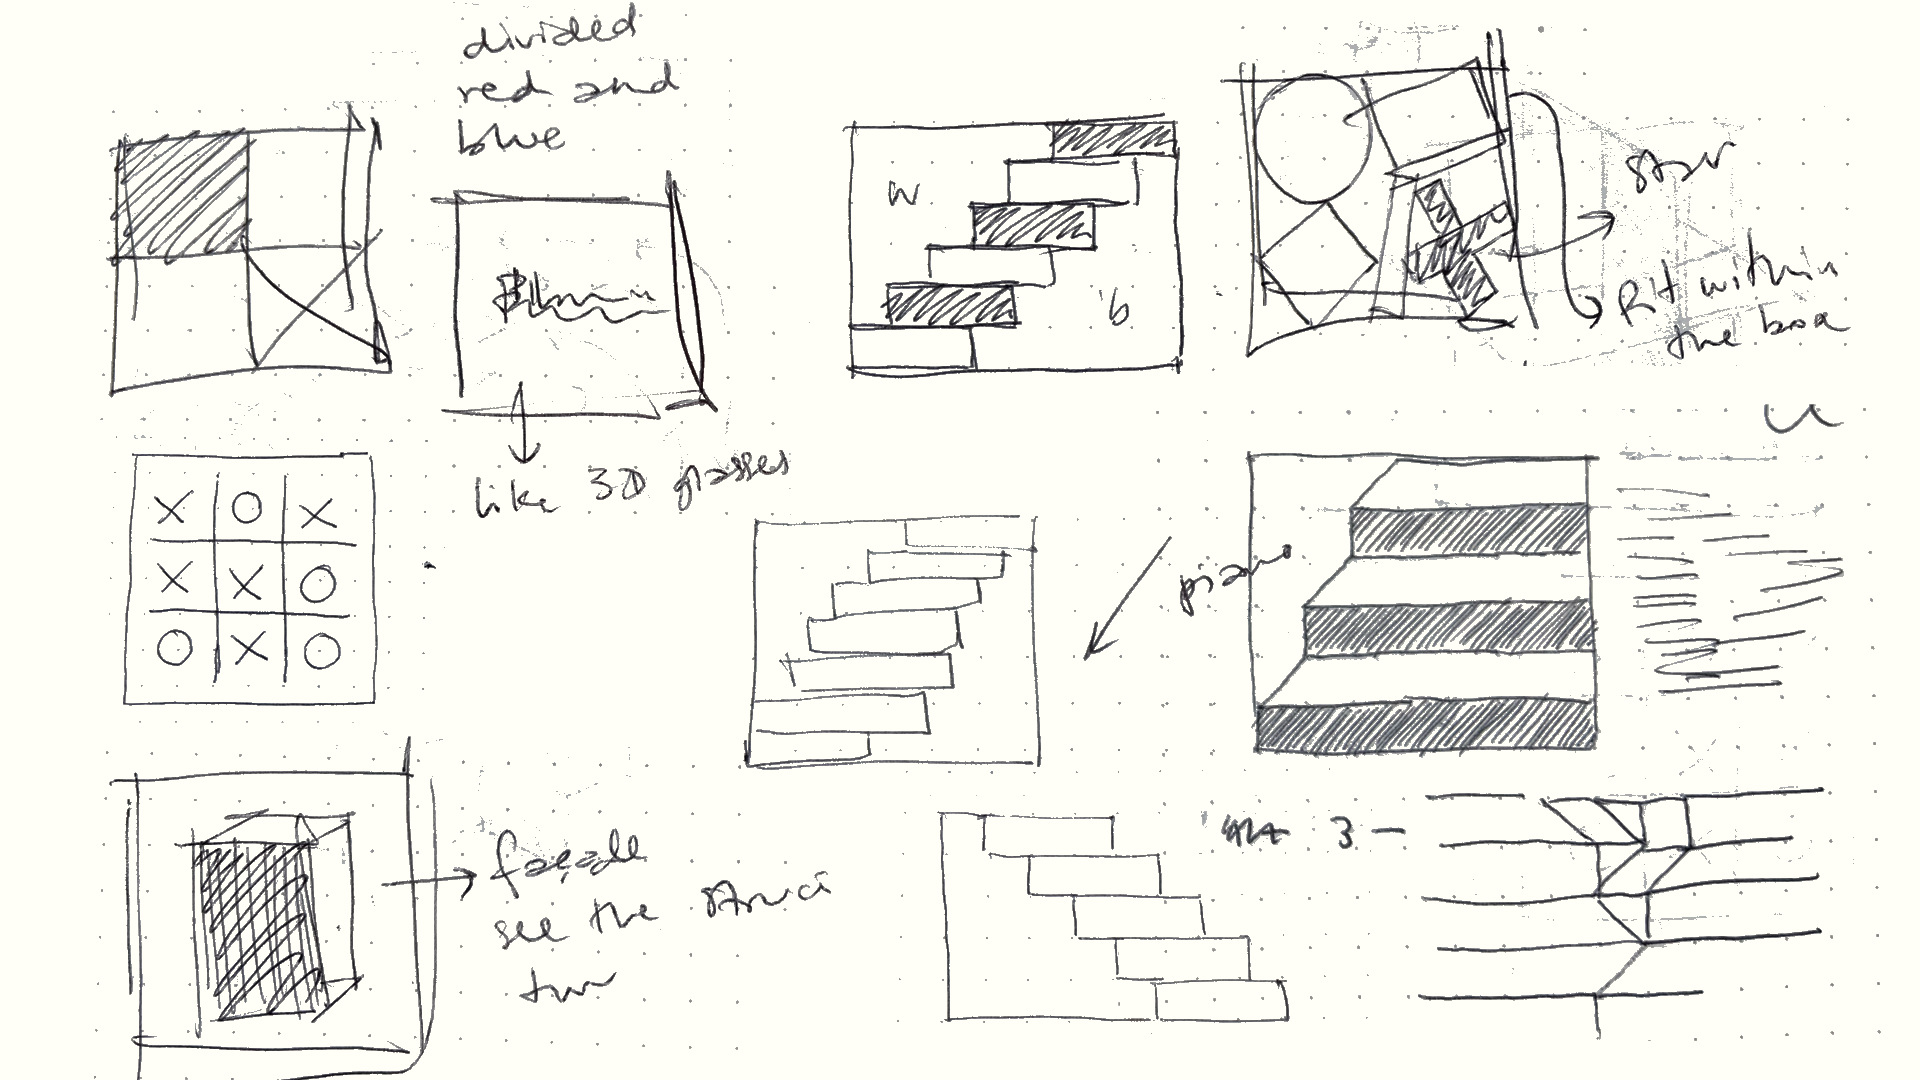 divided
red and
blue
w
b
star
Fit within
the box
like 3D glasses
X O X
X X O
O X O
piano
façade
see the struc
ture
3 —